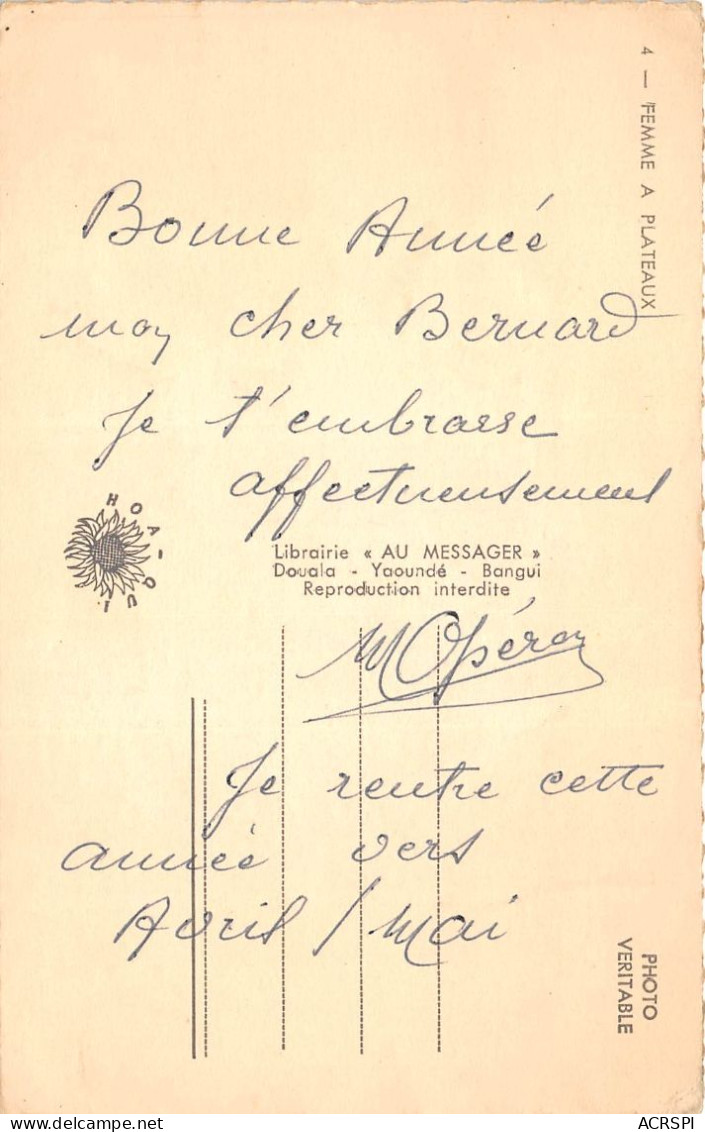 4 — FEMME A PLATEAUX
Bonne Année
mon cher Bernard
je t'embrasse
affectueusement
HOA-QUI
Librairie « AU MESSAGER »
Douala - Yaoundé - Bangui
Reproduction interdite
Je rentre cette
année vers
Avril / Mai
PHOTO
VERITABLE
delcampe.net
ACRSPI